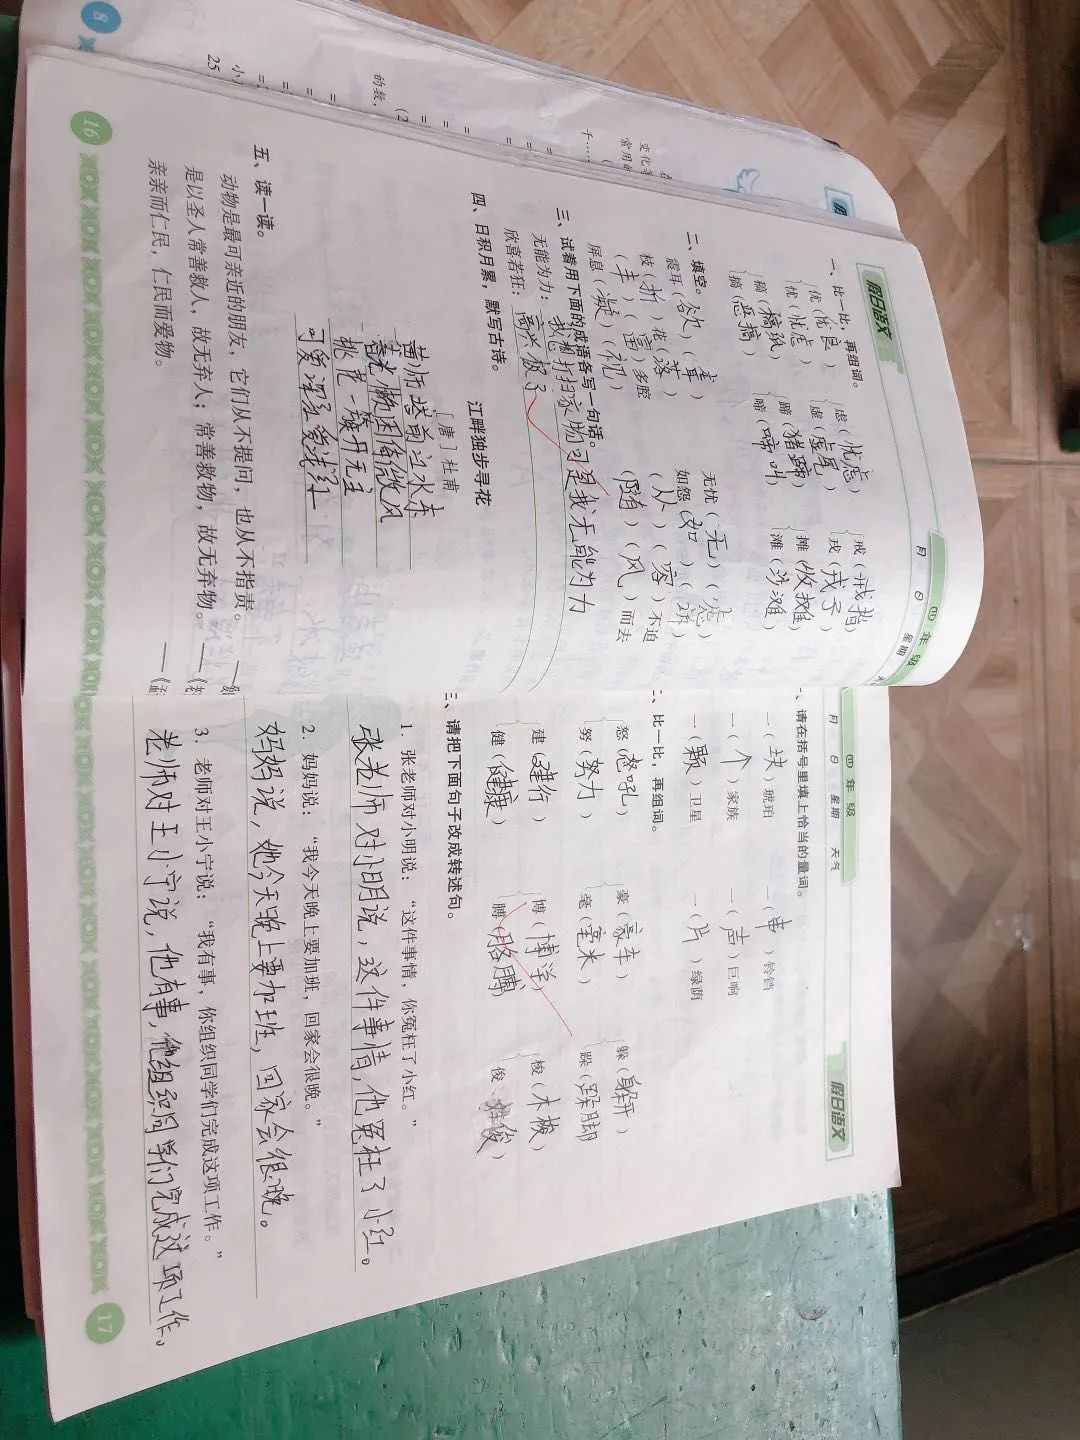 8
25
的数,
变化等
常用的
千……
假日语文
四年级
月 日 星期
一、比一比,再组词。
优(优良) 虑(忧虑) 戒(戒指)
忧(忧虑) 虚(虚尾) 戎(戎子)
稿(稿纸) 蹄(猪蹄) 摊(收摊)
搞(恶搞) 啼(啼叫) 滩(沙滩)
二、填空。
震耳(欲)(聋) 无忧(无)(虑)
枝(折)花(落) 如怨(如)(诉)
(丰)(富)多腔 (从)(容)不迫
屏息(凝)(视) (随)(风)而去
三、试着用下面的成语各写一句话。
无能为力:我想打扫家物可是我无能为力
欣喜若狂:高兴极了
四、日积月累,默写古诗。
江畔独步寻花
[唐]杜甫
黄师塔前江水东
春光懒困倚微风
桃花一簇开无主
可爱深红爱浅红
五、读一读。
动物是最可亲近的朋友,它们从不提问,也从不指责。——
是以圣人常善救人,故无弃人;常善救物,故无弃物。——《老
亲亲而仁民,仁民而爱物。 ——《孟
16
四年级
月 日 星期 天气
假日语文
一、请在括号里填上恰当的量词。
一(块)琥珀 一(串)铃铛
一(个)家族 一(声)巨响
一(颗)卫星 一(片)绿荫
二、比一比,再组词。
怒(怒吼) 豪(豪车) 躲(躲开)
努(努力) 毫(毫米) 跺(跺脚)
建(建行) 博(博学) 梭(木梭)
健(健康) 膊(胳膊) 俊(俊)
三、请把下面句子改成转述句。
1. 张老师对小明说:“这件事情,你冤枉了小红。”
张老师对小明说,这件事情,他冤枉了小红。
2. 妈妈说:“我今天晚上要加班,回家会很晚。”
妈妈说,她今天晚上要加班,回家会很晚。
3. 老师对王小宁说:“我有事,你组织同学们完成这项工作。”
老师对王小宁说,他有事,他组织同学们完成这项工作。
17